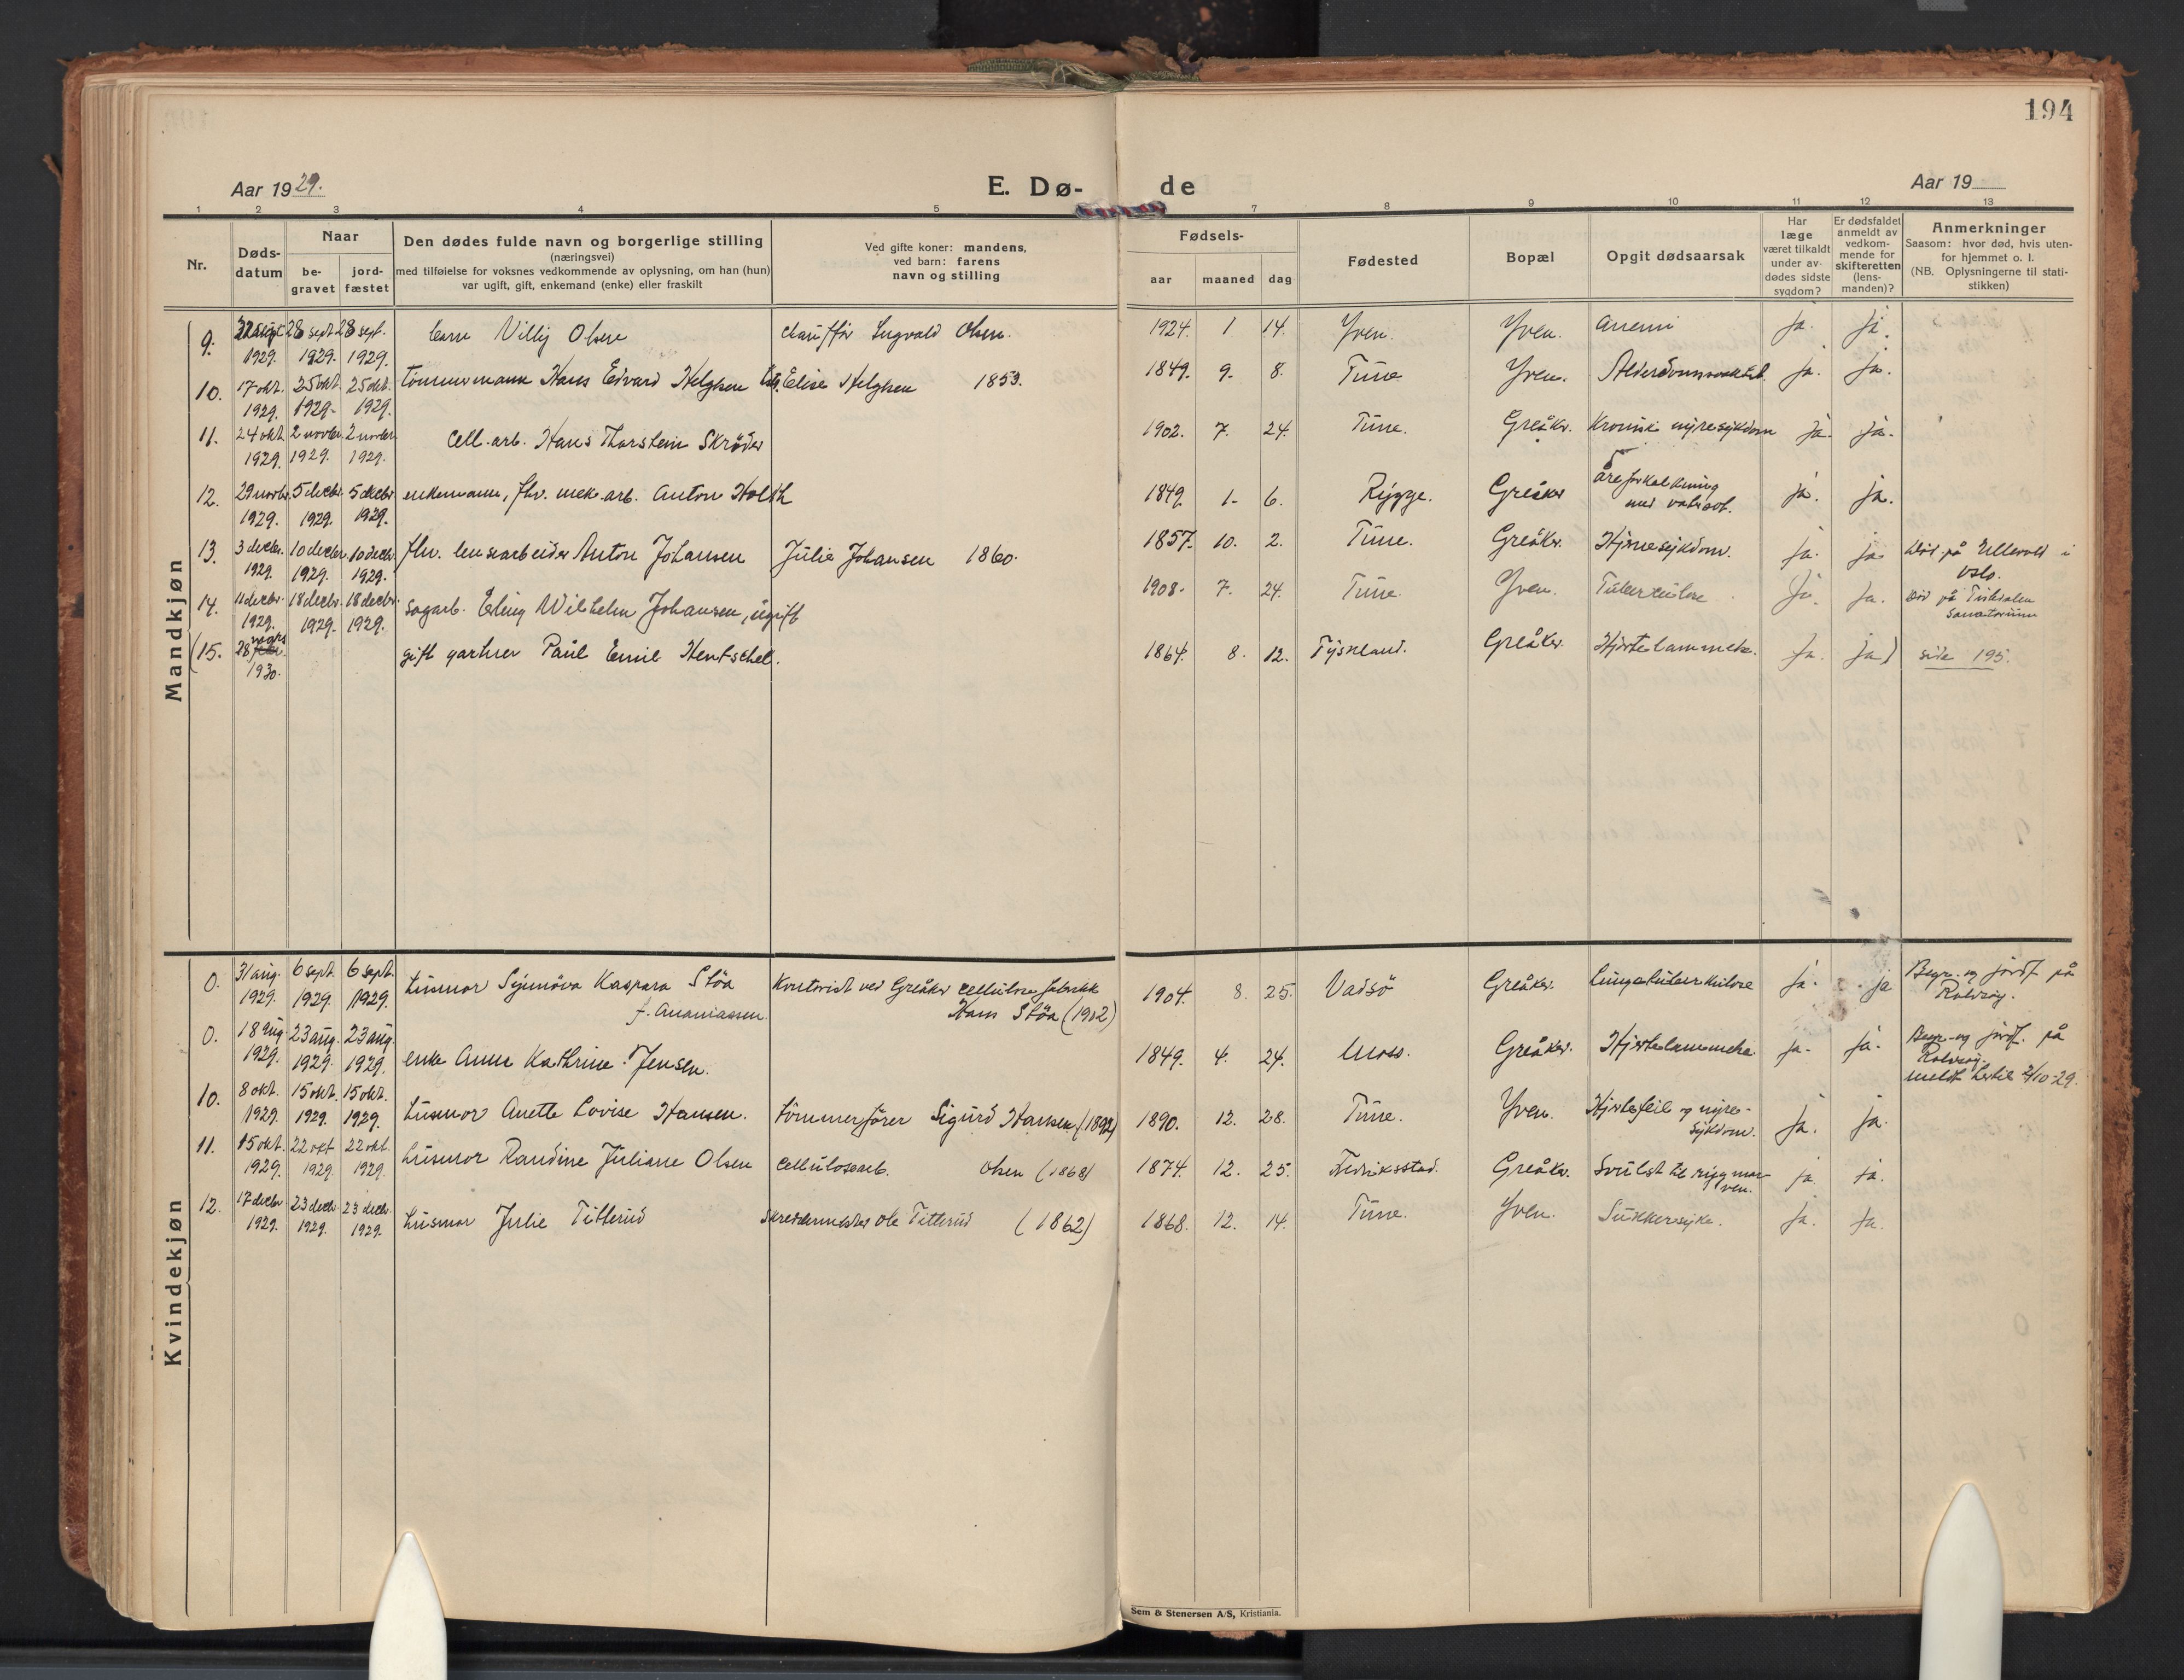 194
Aar 1929.
E. Dø-
de
Aar 19
1 2 3 4 5 7 8 9 10 11 12 13
Nr.
Døds-
datum
Naar
be-
gravet
jord-
fæstet
Den dødes fulde navn og borgerlige stilling
(næringsvei)
med tilføielse for voksnes vedkommende av oplysning, om han (hun)
var ugift, gift, enkemand (enke) eller fraskilt
Ved gifte koner: mandens,
ved barn: farens
navn og stilling
Fødsels-
aar maaned dag
Fødested
Bopæl
Opgit dødsaarsak
Har
læge
været tilkaldt
under av-
dødes sidste
sygdom?
Er dødsfaldet
anmeldt av
vedkom-
mende for
skifteretten
(lens-
manden)?
Anmerkninger
Saasom: hvor død, hvis uten-
for hjemmet o. l.
(NB. Oplysningerne til stati-
stikken)
Mandkjøn
9. 28 sept. 28 sept. Villy Olsen chauffør Olsen. 1924. 1 14. Yven. Yven. anemi ja. ja.
1929. 1929. 1929.
10. 17 okt. 25 okt. 25 okt. tømmermann Hans Edvard Helgesen Elise Helgesen 1853. 1849. 9. 8. Tune Yven. ja. ja.
1929. 1929. 1929.
11. 24 okt. 2 novbr. 2 novbr. cell. arb. Hans Thorstein Skrøder 1902. 7. 24. Tune. Greåker. Kronisk nyresykdom ja. ja.
1929. 1929. 1929.
12. 29 novbr. 5 decbr. 5 decbr. enkemann, fhv. mek. arb. Anton Holth 1849. 1. 6. Rygge. Greåker åreforkalkning ja. ja.
1929. 1929. 1929. med
13. 3 decbr. 10 decbr. 10 decbr. fhv. lensearbeider Anton Johansen Julie Johansen 1860. 1857. 10. 2. Tune. Greåker. Hjernesykdom. ja. ja. Død på Ullevold i
1929. 1929. 1929. Oslo.
14. 11 decbr. 18 decbr. 18 decbr. sagarb. Erling Wilhelm Johansen, ugift 1908. 7. 24. Tune. Yven. Tuberkulose ja. ja. Død på
1929. 1929. 1929. Sanatorium
(15. 28 mars gift gartner Paul Emil Hentschel. 1864. 8. 12. Tyskland. Greåker. Hjertelammelse. ja. ja) side 195.
1930.
Kvindekjøn
0. 31 aug. 6 sept. 6 sept. husmor Synnöva Kaspara Stöa Kontorist ved Greåker cellulose fabrikk 1904. 8. 25. Vadsö Greåker. Lungetuberkulose ja. ja Begr. og jordf. på
1929. 1929. 1929. f. Ananiassen. Hans Stöa (1902) Rolvsøy.
0. 18 aug. 23 aug. 23 aug. enke Anne Kathrine Jensen. 1849. 4. 24. Moss. Greåker. Hjertelammelse. ja. ja. Begr. og jordf. på
1929. 1929. 1929. Rolvsøy.
meldt hertil 2/10-29.
10. 8 okt. 15 okt. 15 okt. husmor Anette Lovise Hansen. tömmerfører Sigurd Hansen (1892) 1890. 12. 28. Tune. Yven. Hjertefeil og nyre- ja. ja.
1929. 1929. 1929. sykdom.
11. 15 okt. 22 okt 22 okt. husmor Randine Juliane Olsen cellulosearb. Olsen (1868) 1874. 12. 25. Fredriksstad. Greåker. Svulst til ryggmar- ja. ja.
1929. 1929. 1929. ven.
12. 17 decbr 23 decbr. 23 decbr. husmor Julie Titterud Skreddermester Ole Titterud (1862) 1868. 12. 14. Tune. Yven. Sukkersyke. ja. ja.
1929. 1929. 1929.
Sem & Stenersen A/S, Kristiania.